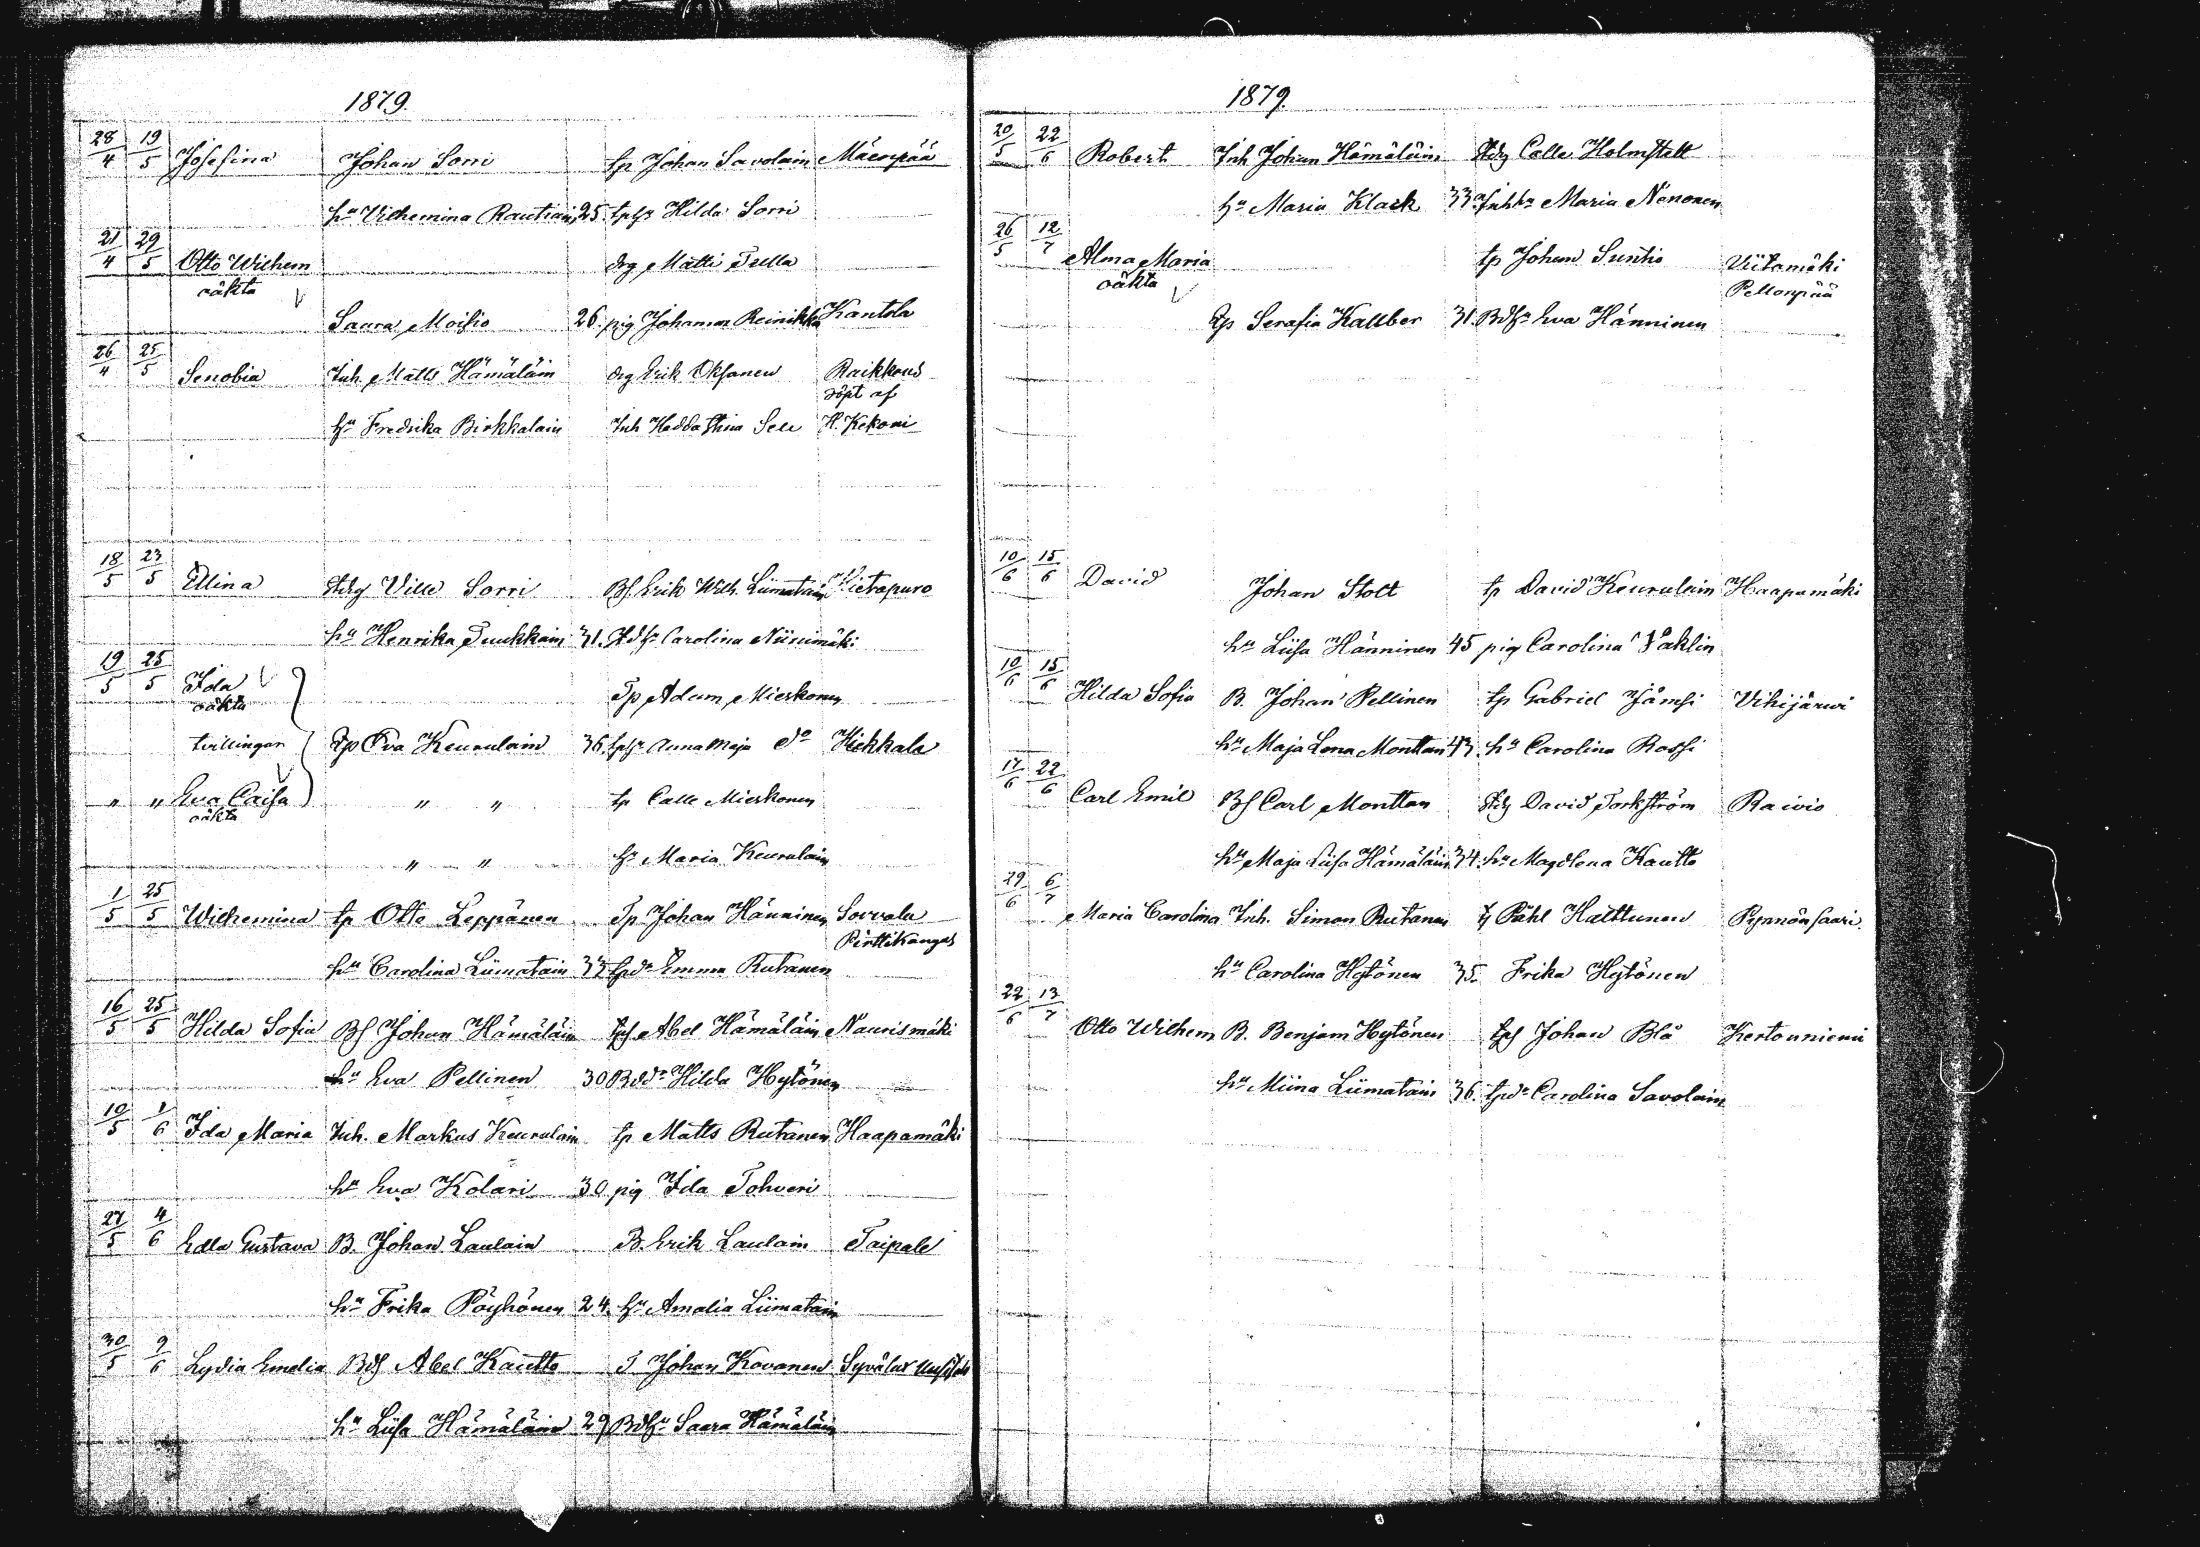 1879.
28/4 19/5 Josefina Johan Sorri tp Johan Savolain Mäenpää
hu Vilhemina Rautiain 25. tphu Hilda Sorri
21/4 29/5 Otto Wilhem drg Matti Tella
oäkta
Saara Moisio 26. pig Johanna Reinikka Kantola
26/4 25/5 Senobia Inh Matts Hämäläin drg Erik Oksanen Raikkous
döpt af
hu Fredrika Birkkalain Inh Hedda Stina H. Kekoni
18/5 23/5 Ellina Stdg Ville Sorri Bs Erik Wilh. Liimatain Vietapuro
hu Henrika Tuukkain 31. Carolina Niinimäki
19/5 25/5 Ida Tp Adam Mieskonen
oäkta
tvillingar Eva Keurulain 36. tphu Anna Maja do Hiekkala
" " Eva Caisa " " tp Calle Mieskonen
oäkta
" " hu Maria Keurulain
1/5 25/5 Wilhemina tp Otto Leppänen Tp Johan Hänninen Sovvala
Pirttikangas
hu Carolina Liimatain 33 tpdr Emma Rutanen
16/5 25/5 Hilda Sofia Bs Johan Hämäläin tps Abel Hämäläin Naurismäki
hu Eva Pellinen 30 Bddr Hilda Hytönen
10/5 1/6 Ida Maria Inh. Markus Keurulain tp Matts Rutanen Haapamäki
hu Eva Kolari 30 pig Ida Tohveri
27/5 4/6 Edla Gustava B. Johan Laulain B. Erik Laulain Taipale
hu Frika Pöyhönen 24. hu Amalia Liimatain
30/5 9/6 Lydia Emelia Bds Abel Kautto T Johan Kovanen Syvälax
hu Liisa Hämäläin 29 Bdhu Saara Hämäläin
1879.
20/5 22/6 Robert Inh Johan Hämäläin Stdg Calle Holmstett
hu Maria Klack 33. Inhhu Maria Nenonen
26/5 12/7 Alma Maria tp Johan Suntio Viitamäki
oäkta Pellonpää
Serafia Kallber 31. Bdhu Eva Hänninen
10/6 15/6 David Johan Stolt tp David Keurulain Haapamäki
hu Liisa Hänninen 45 pig Carolina
10/6 15/6 Hilda Sofia B. Johan Pellinen tp Gabriel Jämsi Vihijärvi
hu Maja Lena Monttan 43. hu Carolina Rossi
17/6 22/6 Carl Emil Bs Carl Monttan Stdg David Torkström Raivio
hu Maja Liisa Hämäläin 34. hu Magdlena Kautto
29/6 6/7 Maria Carolina Inh. Simon Rutanen Påhl Halttunen Pynnönsaari
hu Carolina Hytönen 35. Frika Hytönen
22/6 13/7 Otto Wilhem B. Benjam Hytönen tps Johan Blå Kertouniemi
hu Miina Liimatain 36. tpdr Carolina Savolain